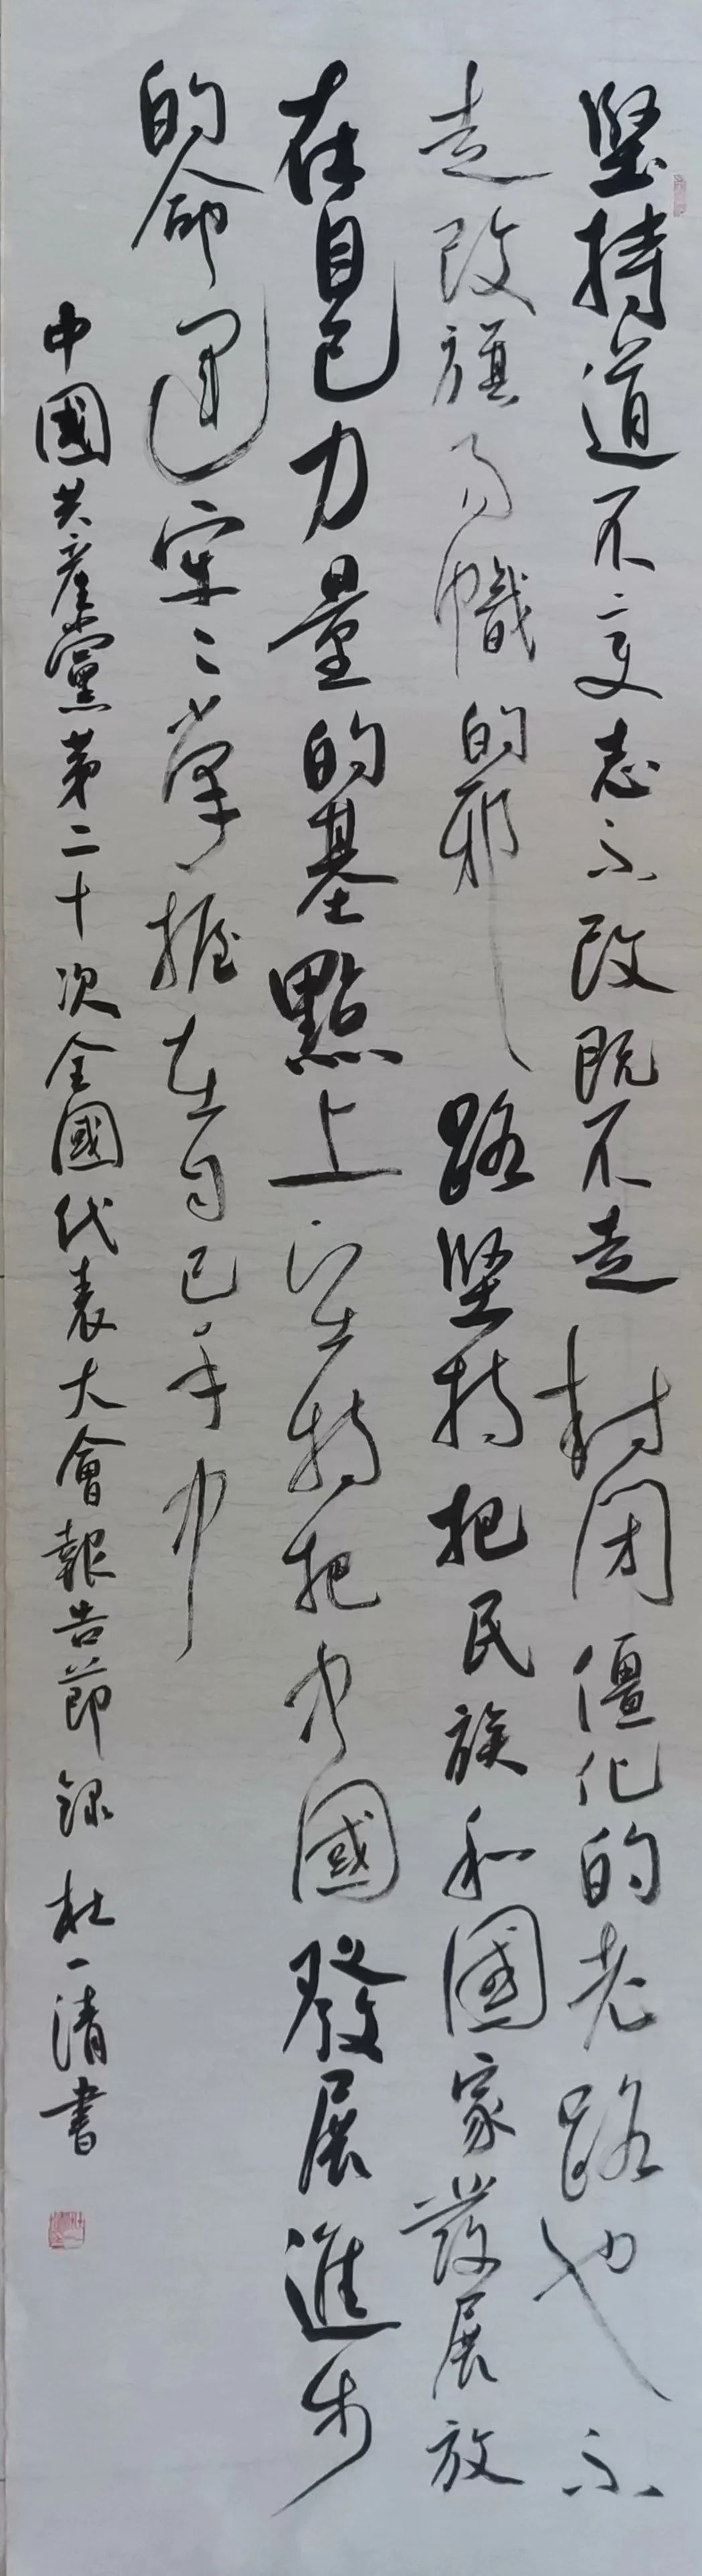 堅持道不变志不改既不走封闭僵化的老路也不
走改旗易幟的邪路堅持把民族和國家發展放
在自己力量的基點上堅持把中國發展進步
的命運牢々掌握在自己手中
中國共產黨第二十次全國代表大會報告節録 杜一清書